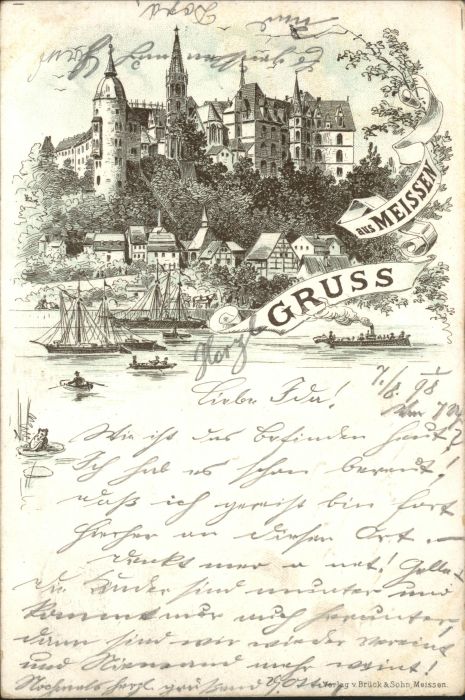 aus MEISSEN
Herzl. GRUSS
7./8. 98
Liebe Ida!
Wie ist das Befinden heut?
Ich hab es schon bereut!
daß ich gereist bin fort
hierher an diesen Ort.
denkt mer a net! Gelle
die Kinder sind munter und
kommt nur auch herunter,
dann sind wir wieder vereint
und Niemand mehr weint!
Nochmals herzl. grüßend
Verlag v. Brück & Sohn, Meissen.